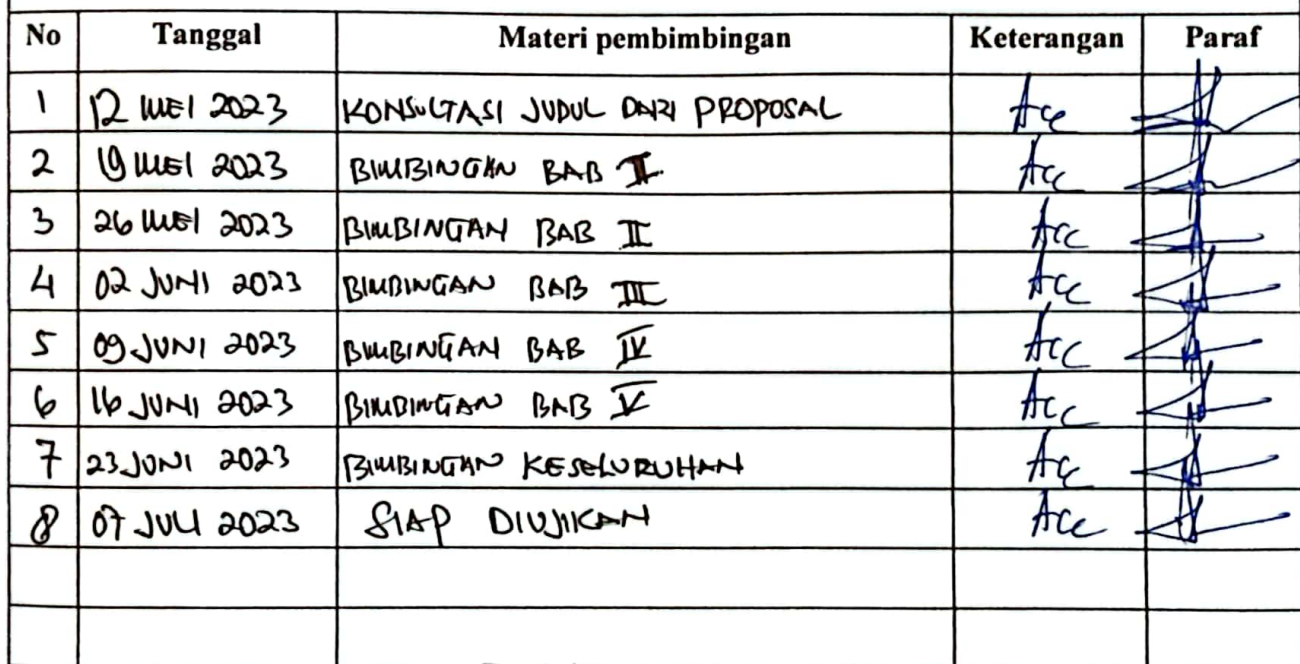 No Tanggal Materi pembimbingan Keterangan Paraf
1 12 MEI 2023 KONSULTASI JUDUL DARI PROPOSAL Acc
2 19 MEI 2023 BIMBINGAN BAB I Acc
3 26 MEI 2023 BIMBINGAN BAB II Acc
4 02 JUNI 2023 BIMBINGAN BAB III Acc
5 09 JUNI 2023 BIMBINGAN BAB IV Acc
6 16 JUNI 2023 BIMBINGAN BAB V Acc
7 23 JUNI 2023 BIMBINGAN KESELURUHAN Acc
8 07 JULI 2023 SIAP DIUJIKAN Acc